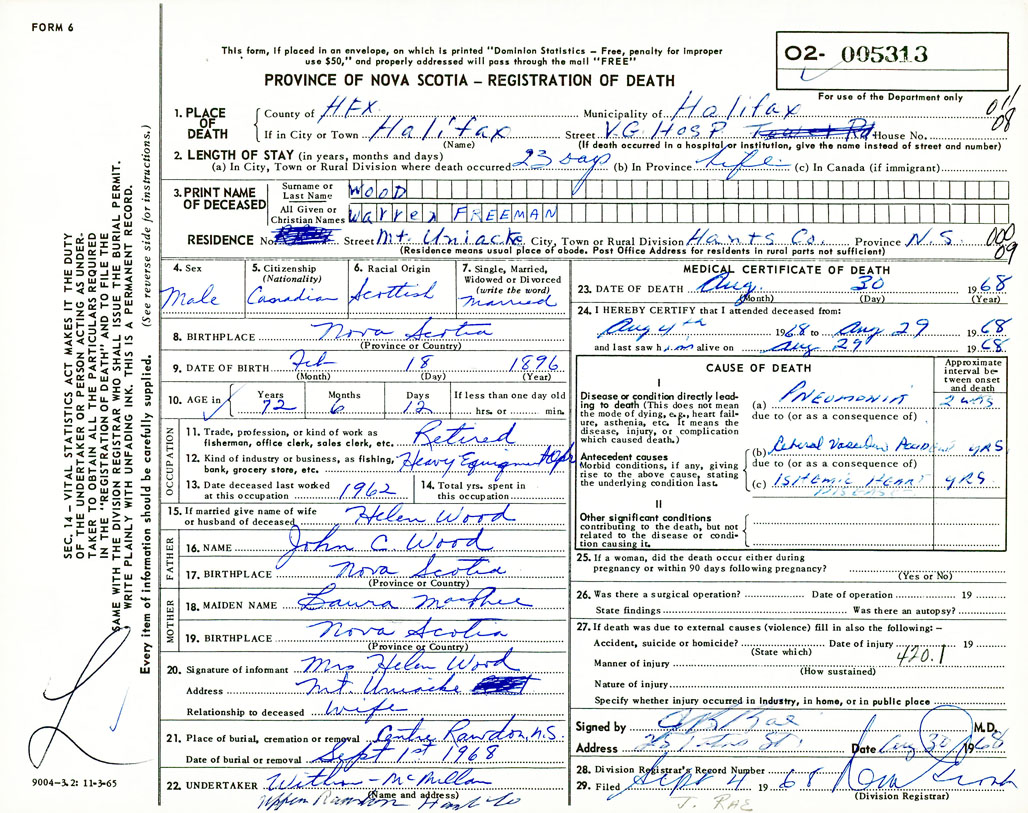 FORM 6
This form, if placed in an envelope, on which is printed "Dominion Statistics – Free, penalty for improper
use $50," and properly addressed will pass through the mail "FREE"
PROVINCE OF NOVA SCOTIA – REGISTRATION OF DEATH
O2- 005313
For use of the Department only
011
08
1. PLACE OF DEATH
County of HFX. Municipality of Halifax
If in City or Town Halifax Street V.G. HOSP. House No.
(Name) (If death occurred in a hospital or institution, give the name instead of street and number)
2. LENGTH OF STAY (in years, months and days)
(a) In City, Town or Rural Division where death occurred 23 Days (b) In Province Life (c) In Canada (if immigrant)
3. PRINT NAME OF DECEASED
Surname or Last Name WOOD
All Given or Christian Names Warren FREEMAN
RESIDENCE No. Street Mt. Uniacke City, Town or Rural Division Hants Co. Province N.S.
(Residence means usual place of abode. Post Office Address for residents in rural parts not sufficient)
000
09
4. Sex Male
5. Citizenship (Nationality) Canadian
6. Racial Origin Scottish
7. Single, Married, Widowed or Divorced (write the word) Married
8. BIRTHPLACE Nova Scotia
(Province or Country)
9. DATE OF BIRTH Feb 18 1896
(Month) (Day) (Year)
10. AGE in Years 72 Months 6 Days 12 If less than one day old hrs. or min.
OCCUPATION
11. Trade, profession, or kind of work as
fisherman, office clerk, sales clerk, etc. Retired
12. Kind of industry or business, as fishing,
bank, grocery store, etc. Heavy Equipment Opr
13. Date deceased last worked
at this occupation 1962
14. Total yrs. spent in
this occupation
15. If married give name of wife
or husband of deceased Helen Wood
FATHER
16. NAME John C. Wood
17. BIRTHPLACE Nova Scotia
(Province or Country)
MOTHER
18. MAIDEN NAME Laura MacPhee
19. BIRTHPLACE Nova Scotia
(Province or Country)
20. Signature of informant Mrs Helen Wood
Address Mt. Uniacke
Relationship to deceased Wife
21. Place of burial, cremation or removal Centre Rawdon, N.S.
Date of burial or removal Sept 1st 1968
22. UNDERTAKER McMillan
(Name and address)
Upper Rawdon Hants Co
MEDICAL CERTIFICATE OF DEATH
23. DATE OF DEATH Aug. 30 1968
(Month) (Day) (Year)
24. I HEREBY CERTIFY that I attended deceased from:
Aug 4th 1968 to Aug 29 1968
and last saw him alive on Aug 29 1968
CAUSE OF DEATH
Approximate interval between onset and death
I
Disease or condition directly leading
to death (This does not mean
the mode of dying, e.g., heart failure,
asthenia, etc. It means the
disease, injury, or complication
which caused death.)
(a) PNEUMONIA 2 wks
due to (or as a consequence of)
Antecedent causes
Morbid conditions, if any, giving
rise to the above cause, stating
the underlying condition last.
(b) Cerebral Vascular Accident yrs
due to (or as a consequence of)
(c) ISHEMIC HEART DISEASE yrs
II
Other significant conditions
contributing to the death, but not
related to the disease or condition
causing it.
25. If a woman, did the death occur either during
pregnancy or within 90 days following pregnancy?
(Yes or No)
26. Was there a surgical operation? Date of operation 19
State findings Was there an autopsy?
27. If death was due to external causes (violence) fill in also the following: –
Accident, suicide or homicide? Date of injury 19
(State which) 420.1
Manner of injury
(How sustained)
Nature of injury
Specify whether injury occurred in industry, in home, or in public place
Signed by Rae M.D.
Address St. Date Aug 30 1968
28. Division Registrar's Record Number
29. Filed Sept 4 1968
(Division Registrar)
J. RAE
SEC. 14 – VITAL STATISTICS ACT MAKES IT THE DUTY
OF THE UNDERTAKER OR PERSON ACTING AS UNDERTAKER
TO OBTAIN ALL THE PARTICULARS REQUIRED
IN THE "REGISTRATION OF DEATH" AND TO FILE THE
SAME WITH THE DIVISION REGISTRAR WHO SHALL ISSUE THE BURIAL PERMIT.
WRITE PLAINLY WITH UNFADING INK. THIS IS A PERMANENT RECORD.
Every item of information should be carefully supplied. (See reverse side for instructions.)
9004–3.2: 11-3-65